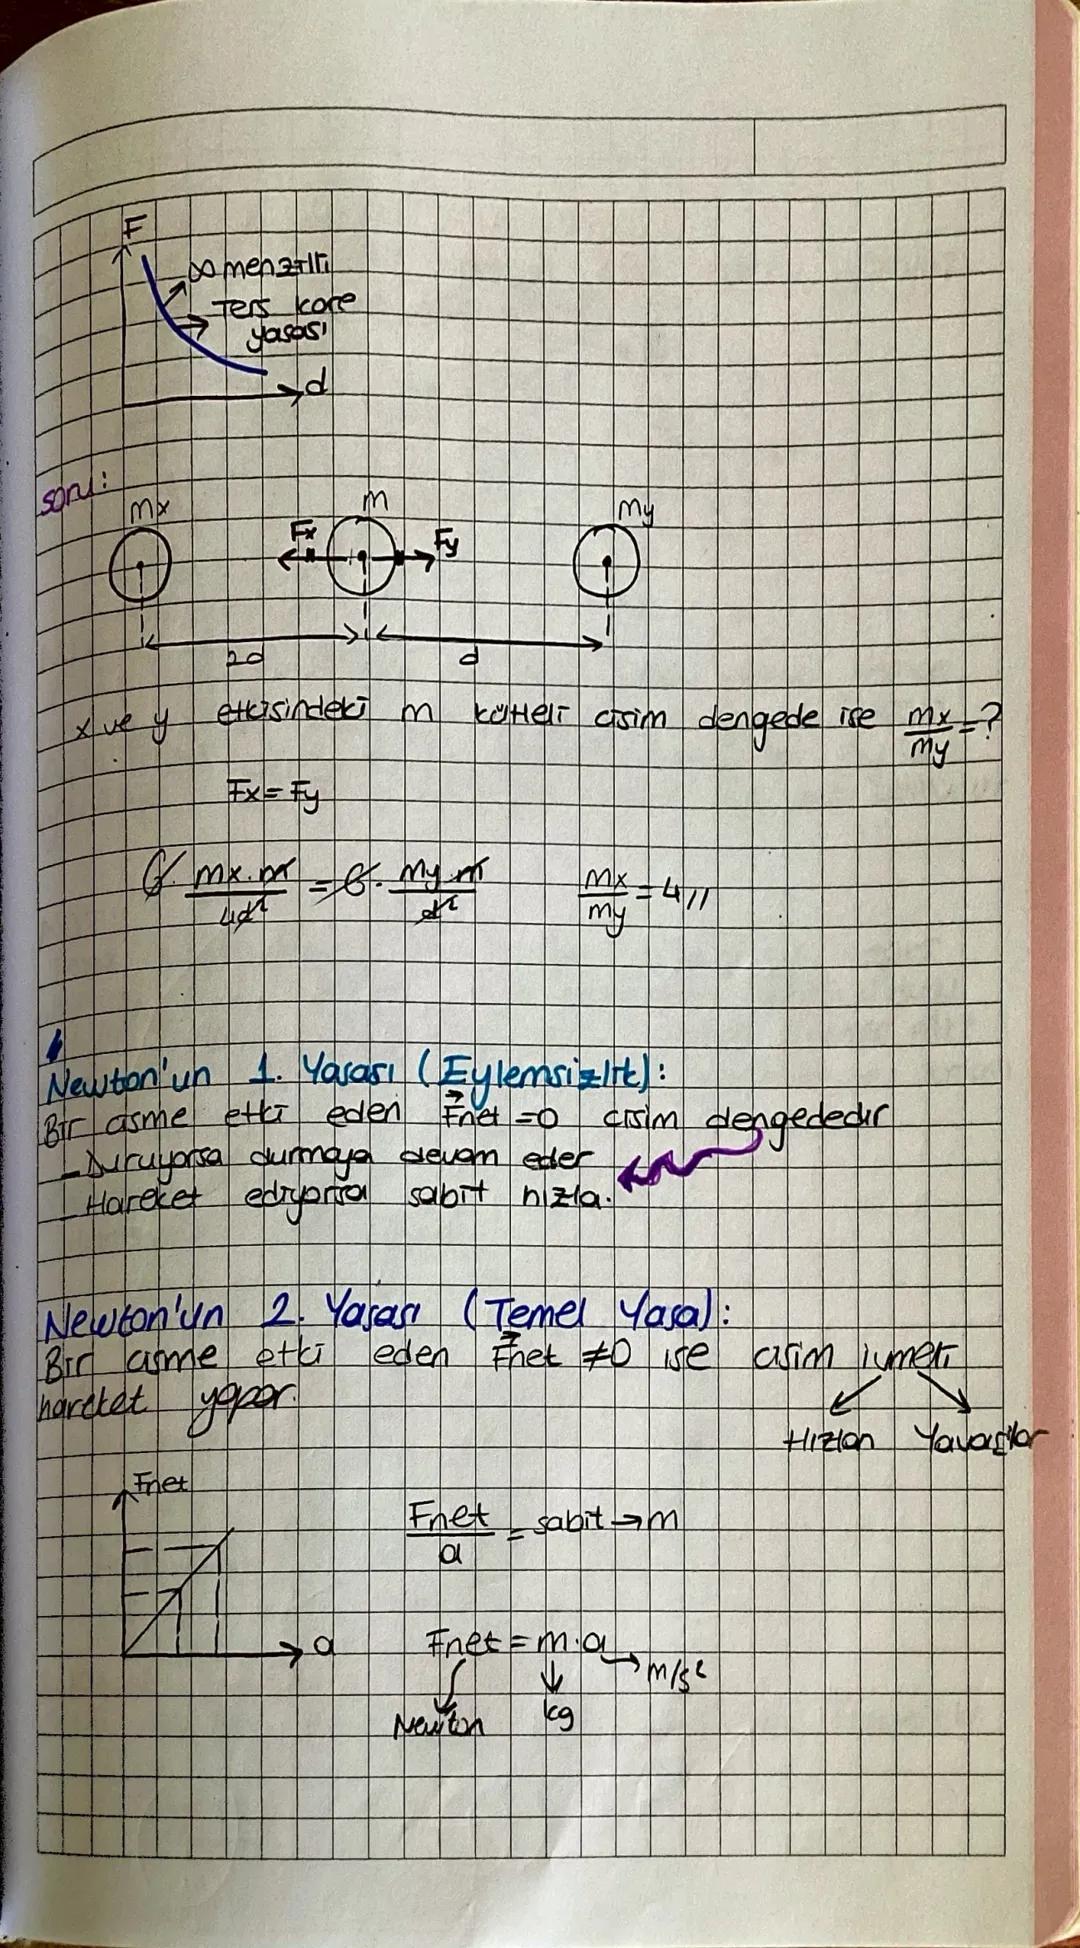 F
∞ menzilli
Ters kare
yasası
d
soru:
mx m my
Fx Fy
2d d
x ve y etkisindeki m kütleli cisim dengede ise mx/my = ?
Fx = Fy
G. mx.m/4d² = G. my.m/d² mx/my = 4//
Newton'un 1. Yasası (Eylemsizlik):
Bir cisme etki eden Fnet = 0 cisim dengededir
- Duruyorsa durmaya devam eder
- Hareket ediyorsa sabit hızla.
Newton'un 2. Yasası (Temel Yasa):
Bir cisme etki eden Fnet ≠ 0 ise cisim ivmeli
hareket yapar.
Hızlan Yavaşlar
Fnet
Fnet/a = sabit → m
a
Fnet = m.a
m/s²
Newton kg